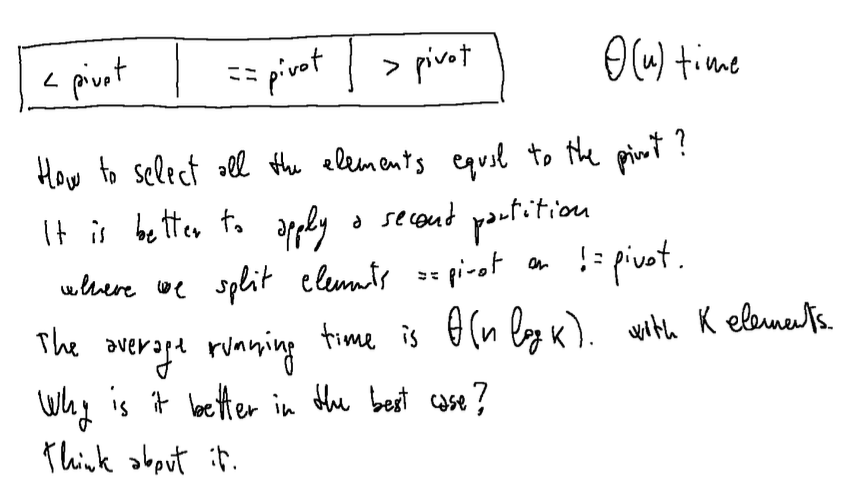 < pivot | == pivot | > pivot Θ(n) time
How to select all the elements equal to the pivot?
It is better to apply a second partition
where we split elements == pivot on != pivot.
The average running time is Θ(n log K). with K elements.
Why is it better in the best case?
Think about it.